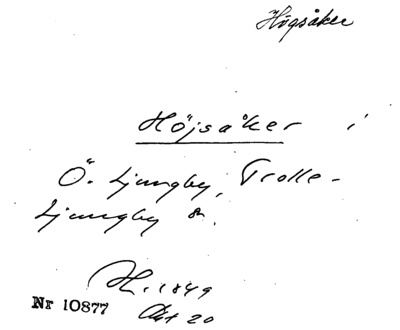 Högsåker
Höjsåker i
Ö. Ljungby, Trolle-
Ljungby sn.
H. 1849
Nr 10877 Akt 20